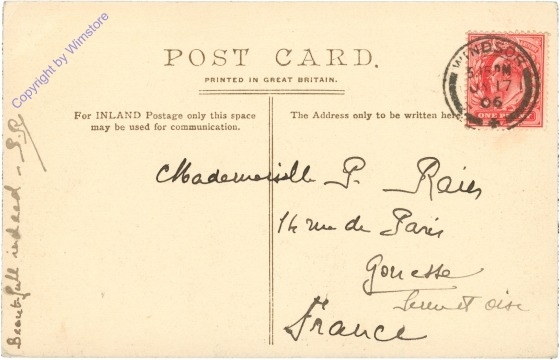 Copyright by Wimstore
POST CARD.
PRINTED IN GREAT BRITAIN.
For INLAND Postage only this space
may be used for communication.
The Address only to be written here.
WINDSOR
17
06
ONE PENNY
Mademoiselle P.
14 rue de Paris
Gonesse
Seine et Oise
France
Beautifull indeed -